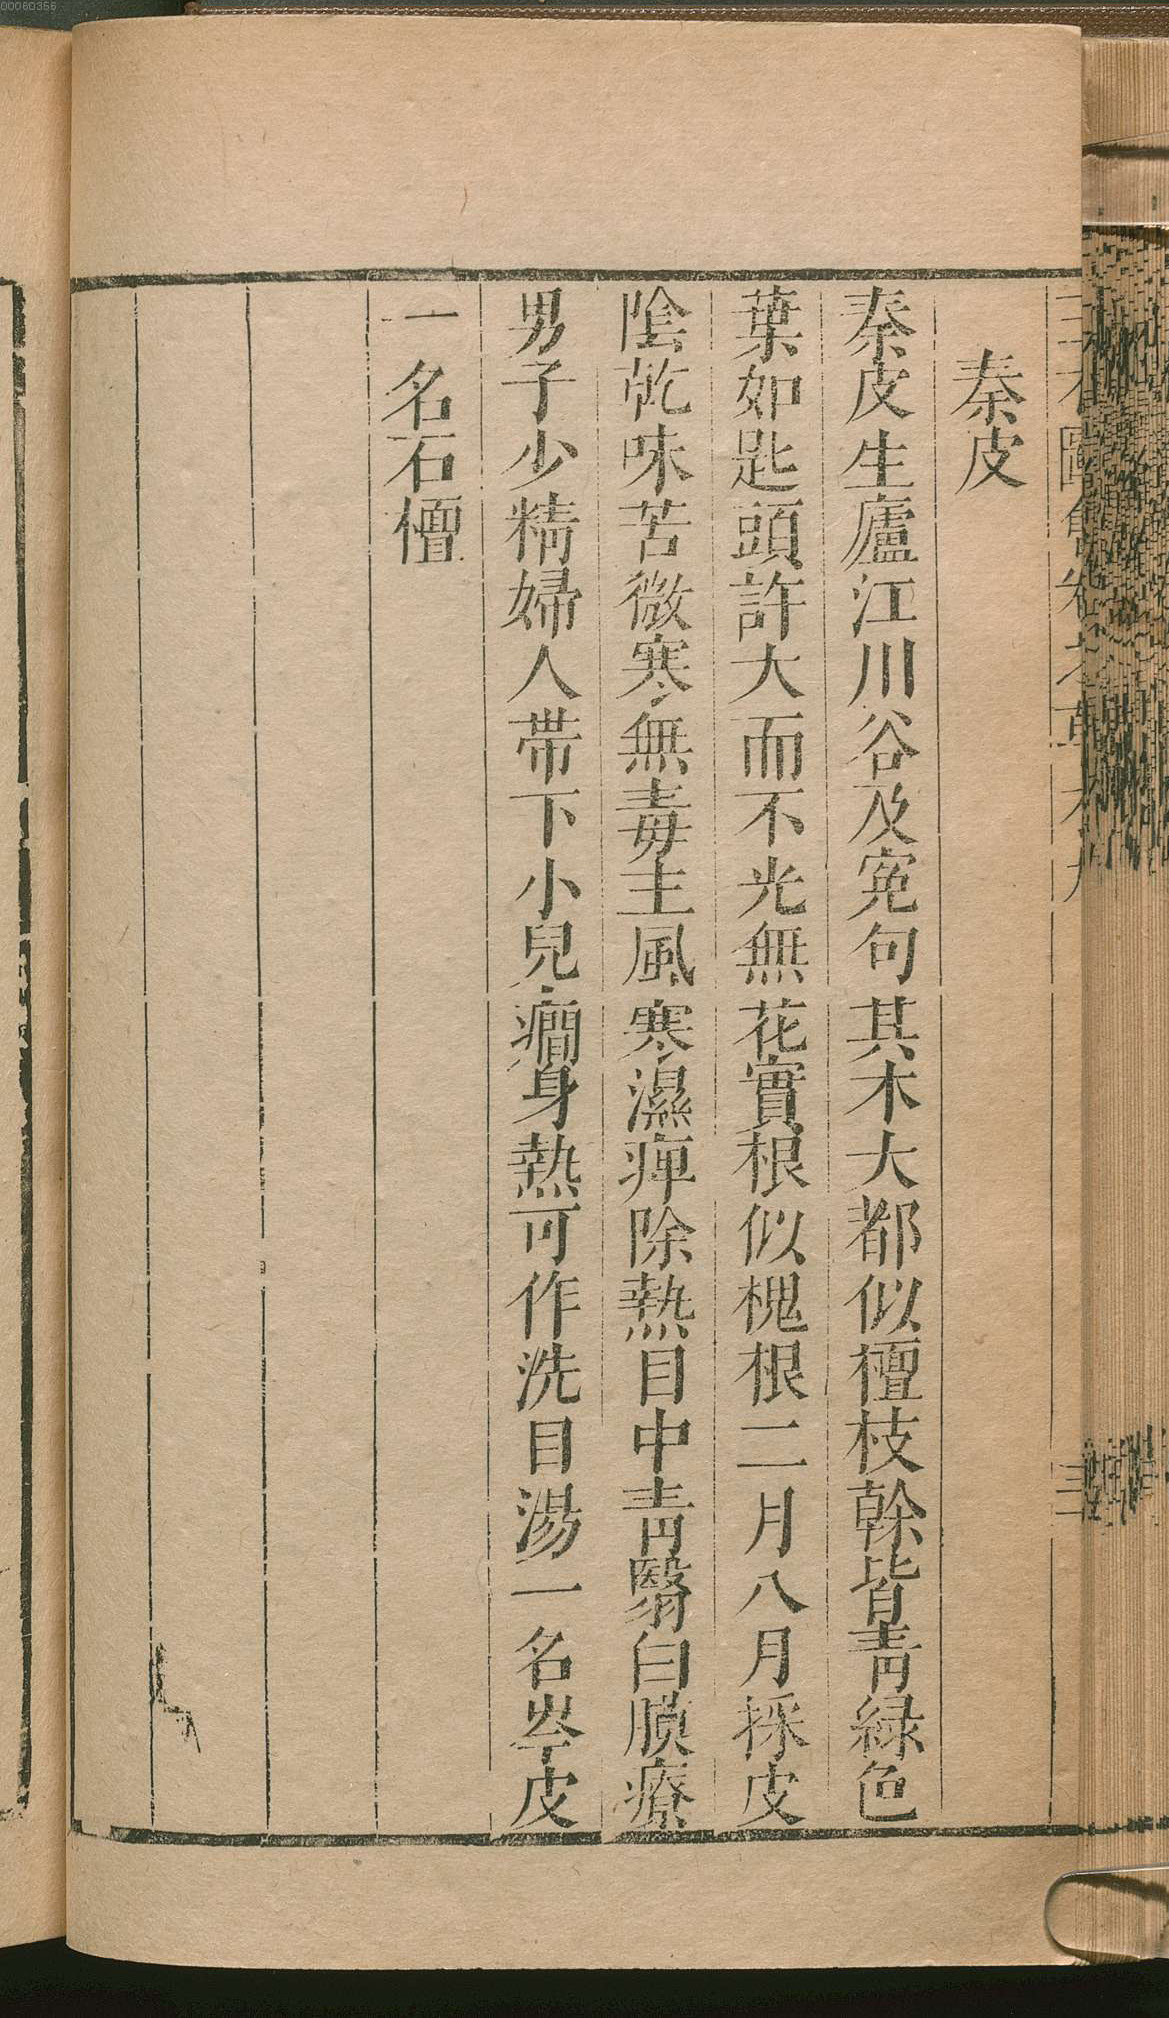 00060356
秦皮
秦皮生廬江川谷及寃句其木大都似檀枝幹皆靑緑色
葉如匙頭許大而不光無花實根似槐根二月八月採皮
陰乾味苦微寒無毒主風寒濕痺除熱目中靑翳白膜療
男子少精婦人帶下小兒癎身熱可作洗目湯一名岑皮
一名石檀